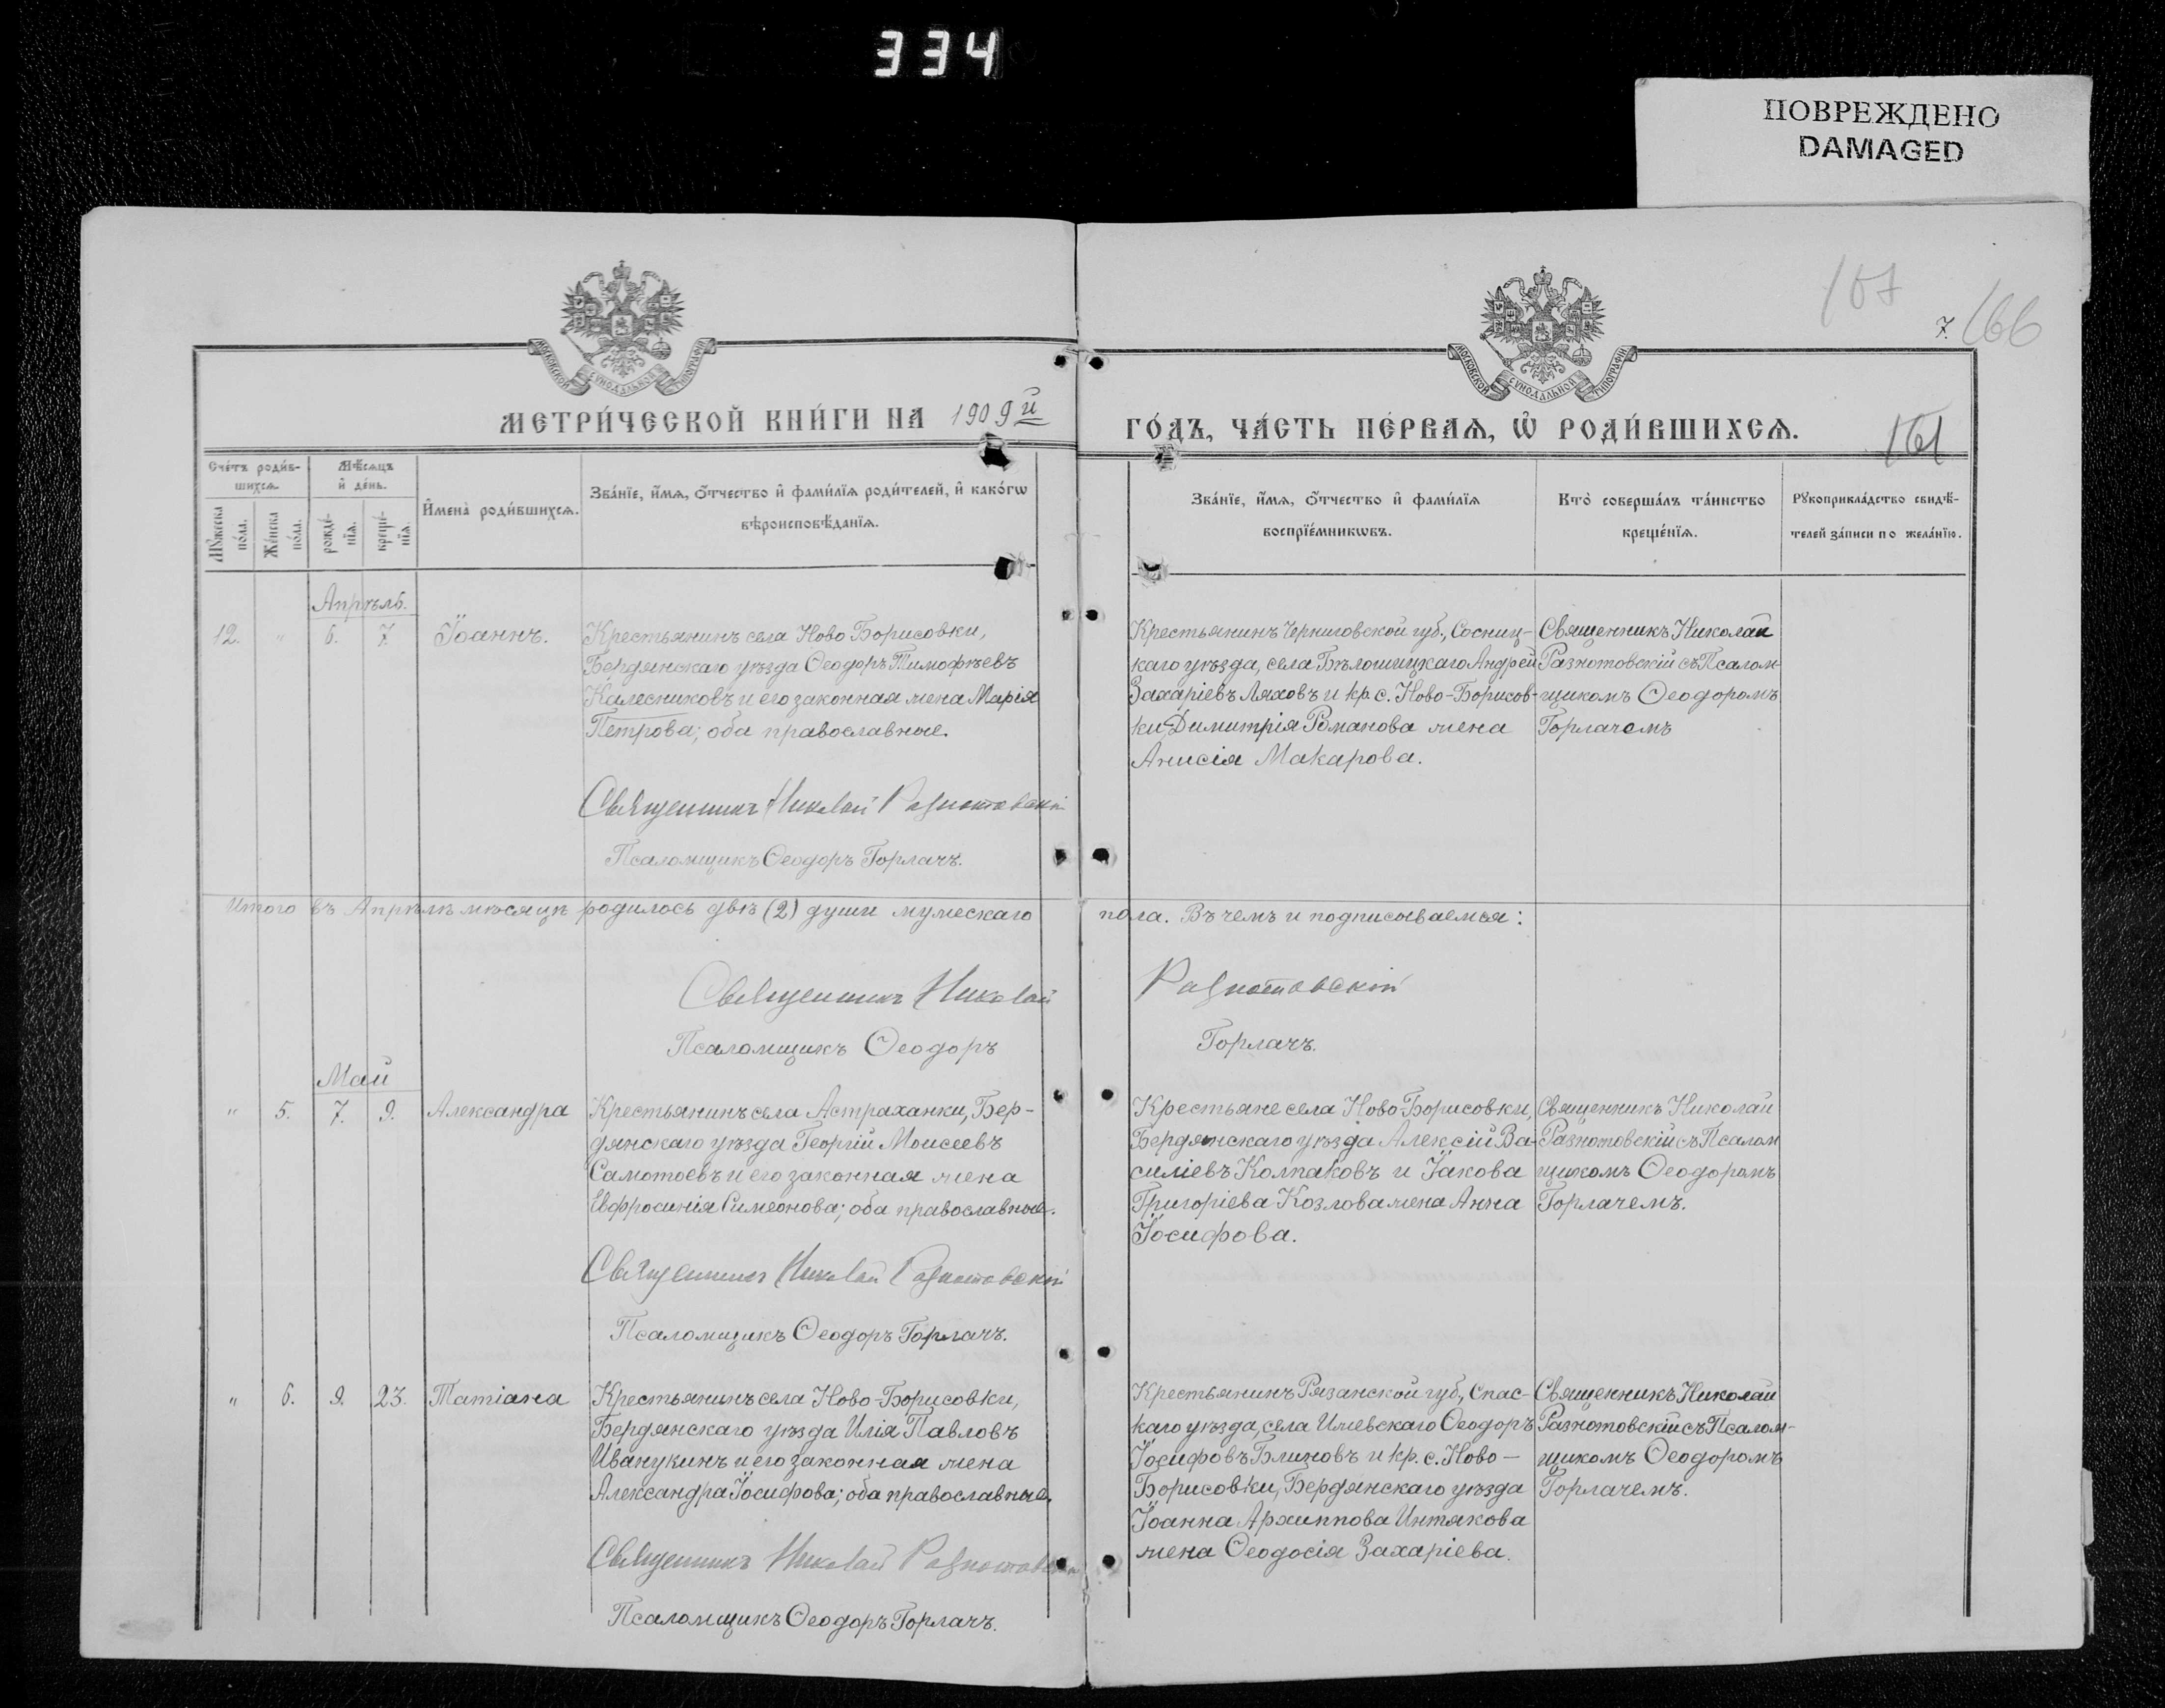 334
ПОВРЕЖДЕНО
DAMAGED
107
7.
166
161
МОСКОВСКОЙ СѴНОДАЛЬНОЙ ТИПОГРАФІИ
МОСКОВСКОЙ СѴНОДАЛЬНОЙ ТИПОГРАФІИ
МЕТРИ́ЧЕСКОЙ КНИ́ГИ НА 1909й
ГО́ДЪ, ЧА́СТЬ ПЕ́РВАѦ, Ѡ҆ РОДИ́ВШИХСѦ.
Сче́тъ роди́в-
шихсѧ.
Мꙋ́жеска
по́ла.
Же́нска
по́ла.
Мѣ́сѧцъ
и҆ де́нь.
рожде́-
нїѧ.
креще́-
нїѧ.
И҆мена̀ роди́вшихсѧ.
Зва́нїе, и҆́мѧ, ѻ҆́тчество и҆ фами́лїѧ роди́телей, и҆ како́гѡ
вѣроисповѣ́данїѧ.
Зва́нїе, и҆́мѧ, ѻ҆́тчество и҆ фами́лїѧ
воспрїе́мникѡвъ.
Кто̀ соверша́лъ та́инство
креще́нїѧ.
Рꙋкоприкла́дство свидѣ́-
телей за́писи по жела́нїю.
Апрѣль.
12. " 6. 7 Іоаннъ.
Крестьянинъ села Ново Борисовки,
Бердянскаго уѣзда Ѳеодоръ Тимофѣевъ
Калесниковъ и его законная жена Марія
Петрова; оба православные.
Священникъ Николай Разнотовскій
Псаломщикъ Ѳеодоръ Горлачъ.
Крестьянинъ Черниговской губ., Сосниц-
каго уѣзда, села Бѣлошицкаго Андрей
Захаріевъ Ляховъ и кр. с. Ново-Борисов-
ки, Димитрія Романова жена
Анисія Макарова.
Священникъ Николай
Разнотовскій съ Псалом-
щикомъ Ѳеодоромъ
Горлачемъ
Итого въ Апрѣлѣ мѣсяцѣ родилось двѣ (2) души мужескаго пола. Въ чемъ и подписываемся:
Священникъ Николай Разнотовскій
Псаломщикъ Ѳеодоръ Горлачъ.
Май
" 5. 7. 9. Александра
Крестьянинъ села Астраханки, Бер-
дянскаго уѣзда Георгій Моисеевъ
Самотоевъ и его законная жена
Евфросинія Симеонова; оба православные.
Священникъ Николай Разнотовскій
Псаломщикъ Ѳеодоръ Горлачъ.
Крестьяне села Ново Борисовки,
Бердянскаго уѣзда Алексій Ва-
силіевъ Колпаковъ и Іакова
Григоріева Козлова жена Анна
Іосифова.
Священникъ Николай
Разнотовскій съ Псалом
щикомъ Ѳеодоромъ
Горлачемъ.
" 6. 9. 23. Татіана
Крестьянинъ села Ново-Борисовки,
Бердянскаго уѣзда Илія Павловъ
Иванукинъ и его законная жена
Александра Іосифова; оба православные.
Священникъ Николай Разнотовскій
Псаломщикъ Ѳеодоръ Горлачъ.
Крестьянинъ Рязанской губ., Спас-
каго уѣзда, села Ижевскаго Ѳеодоръ
Іосифовъ Блиновъ и кр. с. Ново-
Борисовки, Бердянскаго уѣзда
Іоанна Архиппова Интякова
жена Ѳеодосія Захаріева.
Священникъ Николай
Разнотовскій съ Псалом-
щикомъ Ѳеодоромъ
Горлачемъ.